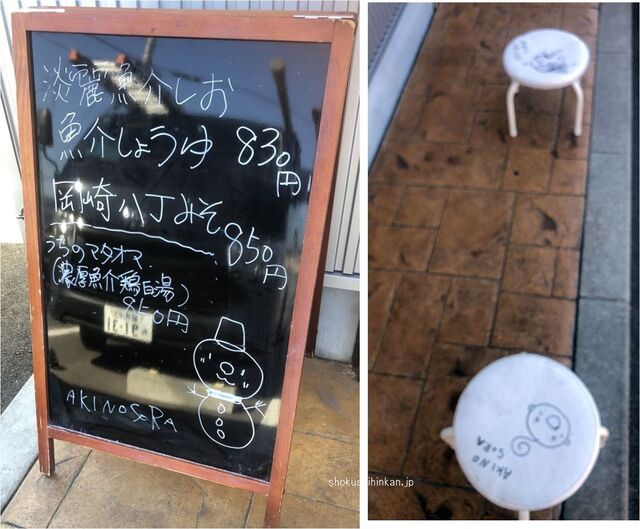 淡麗魚介しお
魚介しょうゆ 830円
岡崎八丁みそ
850円
うちのマタオマ
(濃厚魚介鶏白湯)
850円
AKINOSORA
AKINO
SORA
shokuseihinkan.jp